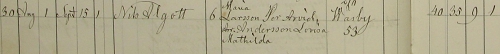 30 Aug 1 Sept 15 1 Nils Algott 6 Maria
Larsson Per Arvid
Andersson Lovisa
Mathilda
Warby
53
40 35 9 1